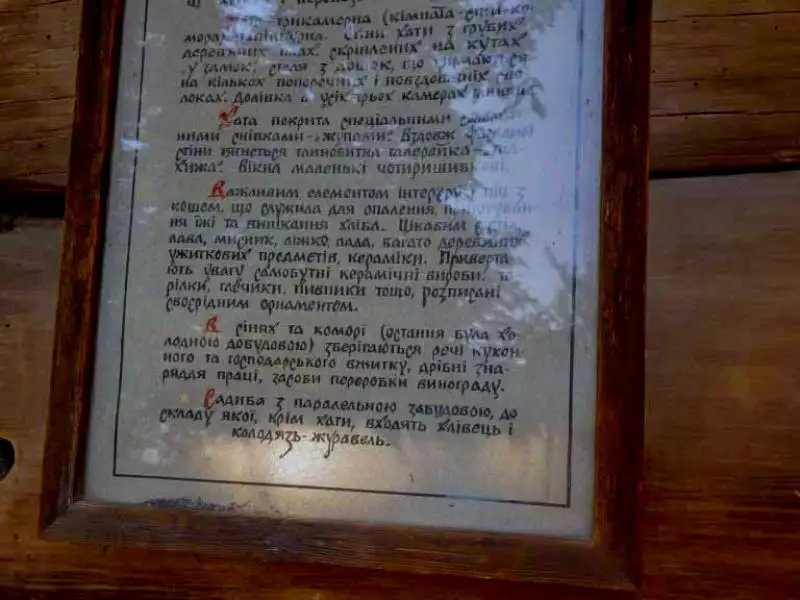 Хата трикамерна (кімната-сіни-ко-
мора) Стіни хати з грубих
деревяних скріплених на кутах
"у замок", стеля з дошок, що тримаються
на кількох поперечних і повздовжніх сво-
локах. Долівка в усіх трьох камерах глиняна
Хата покрита спеціальними
ними снопками-"жупами". Вздовж
стіни тягнеться глинобитна галерейка-
хижа". Вікна маленькі чотиришибкові.
Важливим елементом інтерєру піч з
кошем, що служила для опалення, приготуван-
ня їжі та випікання хліба. Цікавим є
лава, мисник, ліжко, лада, багато деревяних
ужиткових предметів, кераміки. Приверта-
ють увагу самобутні керамічні вироби: та-
рілки, глечики, пивники тощо, розписані
своєрідним орнаментом.
В сінях та коморі (остання була хо-
лодною добудовою) зберігаються речі кухон-
ного та господарського вжитку, дрібні зна-
ряддя праці, засоби переробки винограду.
Садиба з паралельною забудовою, до
складу якої, крім хати, входять хлівець і
колодязь-журавель.